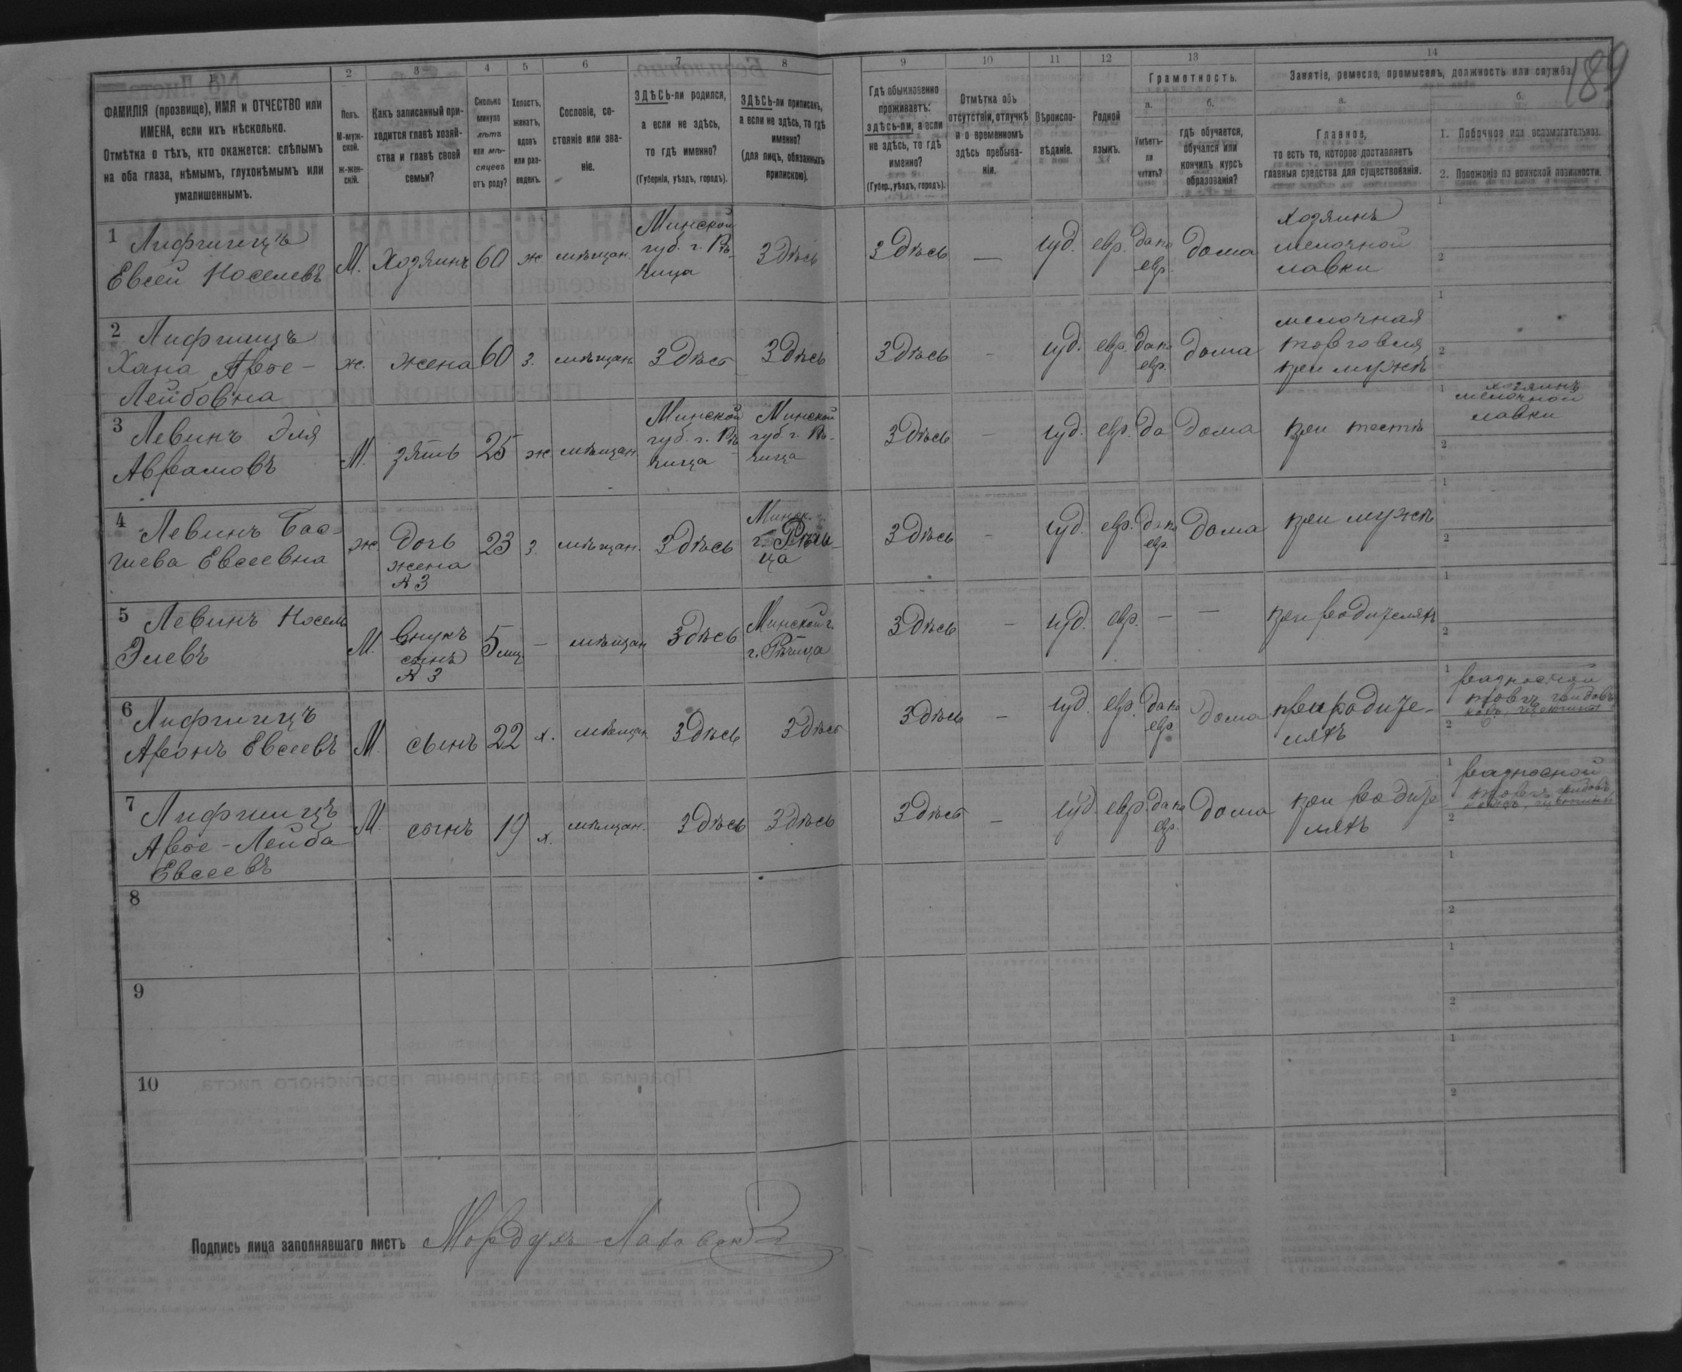 189
1
2
3
4
5
6
7
8
9
10
11
12
13
14
ФАМИЛІЯ (прозвище), ИМЯ и ОТЧЕСТВО или
ИМЕНА, если ихъ нѣсколько.
Отмѣтка о тѣхъ, кто окажется: слѣпымъ
на оба глаза, нѣмымъ, глухонѣмымъ или
умалишеннымъ.
Полъ.
М-муж-
ской.
ж-жен-
скій.
Какъ записанный при-
ходится главѣ хозяй-
ства и главѣ своей
семьи?
Сколько
минуло
лѣтъ
или мѣ-
сяцевъ
отъ роду?
Холостъ,
женатъ,
вдовъ
или раз-
веденъ.
Сословіе, со-
стояніе или зва-
ніе.
ЗДѢСЬ-ли родился,
а если не здѣсь,
то гдѣ именно?
(Губернія, уѣздъ, городъ).
ЗДѢСЬ-ли приписанъ,
а если не здѣсь, то гдѣ
именно?
(для лицъ, обязанныхъ
припискою).
Гдѣ обыкновенно
проживаетъ:
здѣсь-ли, а если
не здѣсь, то гдѣ
именно?
(Губер., уѣздъ, городъ).
Отмѣтка объ
отсутствіи, отлучкѣ
и о временномъ
здѣсь пребыва-
ніи.
Вѣроиспо-
вѣданіе.
Родной
языкъ.
Грамотность.
а.
Умѣетъ-
ли
читать?
б.
гдѣ обучается,
обучался или
кончилъ курсъ
образованія?
Занятіе, ремесло, промыселъ, должность или служба.
а.
Главное,
то есть то, которое доставляетъ
главныя средства для существованія.
б.
1. Побочное или вспомогательное.
2. Положеніе по воинской повинности.
1 Лифшицъ
Евсей Носелевъ
М. Хозяинъ 60 ж мѣщан.
Минской
губ. г. Рѣ-
чица
Здѣсь
Здѣсь — іуд. евр. да на
евр.
дома
Хозяинъ
мелочной
лавки
2 Лифшицъ
Хана Авое-
Лейбовна
ж. жена 60 з. мѣщан. Здѣсь Здѣсь
Здѣсь - іуд. евр. да на
евр.
дома
мелочная
торговля
при мужѣ
3 Левинъ Эля
Авраамовъ
М. зять 25 ж мѣщан.
Минской
губ. г. Рѣ-
чица
Минской
губ. г. Рѣ-
чица
Здѣсь - іуд. евр. да дома при тестѣ
хозяинъ
мелочной
лавки
4 Левинъ Бас-
шева Евсеевна
ж дочь
жена
№ 3
23 з. мѣщан. Здѣсь
Минск. г.
г. Рѣчи-
ца
Здѣсь - іуд. евр. да на
евр.
дома при мужѣ
5 Левинъ Носель
Элевъ
М. внукъ
сынъ
№ 3
5 мцъ — мѣщан Здѣсь
Минской г.
г. Рѣчица
Здѣсь - іуд. евр. — — при родителяхъ
6 Лифшицъ
Аронъ Евсеевъ
М. сынъ 22 х. мѣщан Здѣсь Здѣсь
Здѣсь - іуд. евр. да на
евр.
дома
при родите-
ляхъ
разносчи
7 Лифшицъ
Авое-Лейба
Евсеевъ
М сынъ 19 х. мѣщан. Здѣсь Здѣсь
Здѣсь - іуд. евр. да на
евр.
дома
при родите
ляхъ
разносной
8
9
10
Подпись лица заполнявшаго листъ Мордухъ